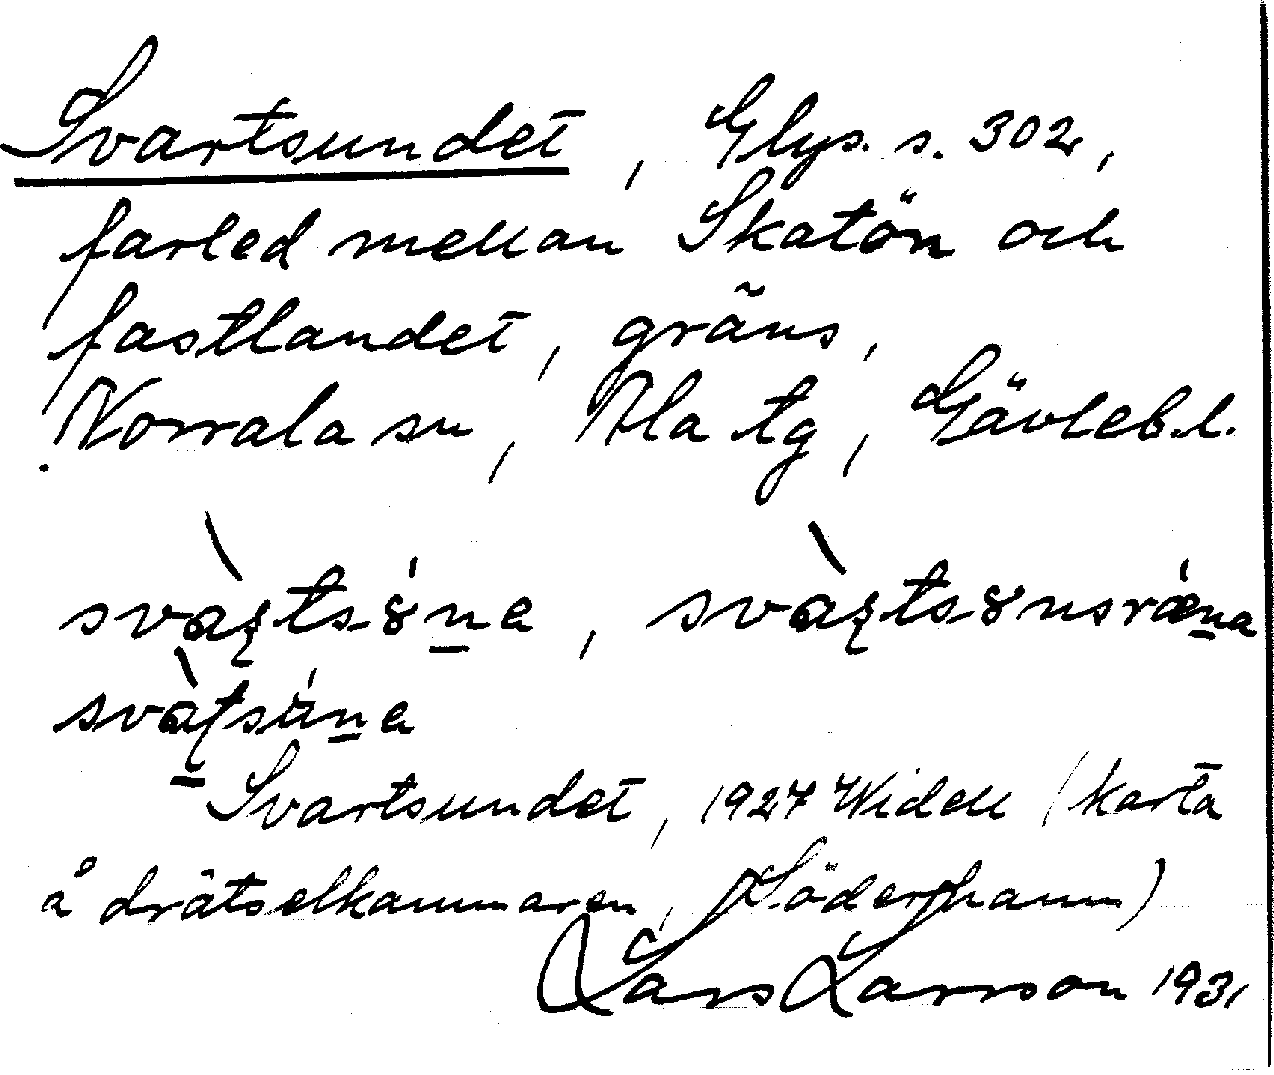 Svartsundet, Glys. s. 302,
farled mellan Skatön och
fastlandet, gräns,
Norrala sn, Ala tg, Gävleb.l.
Svartsundet, 1927 Widell (karta
å drätselkammaren, Söderhamn)
Lars Larsson 1931